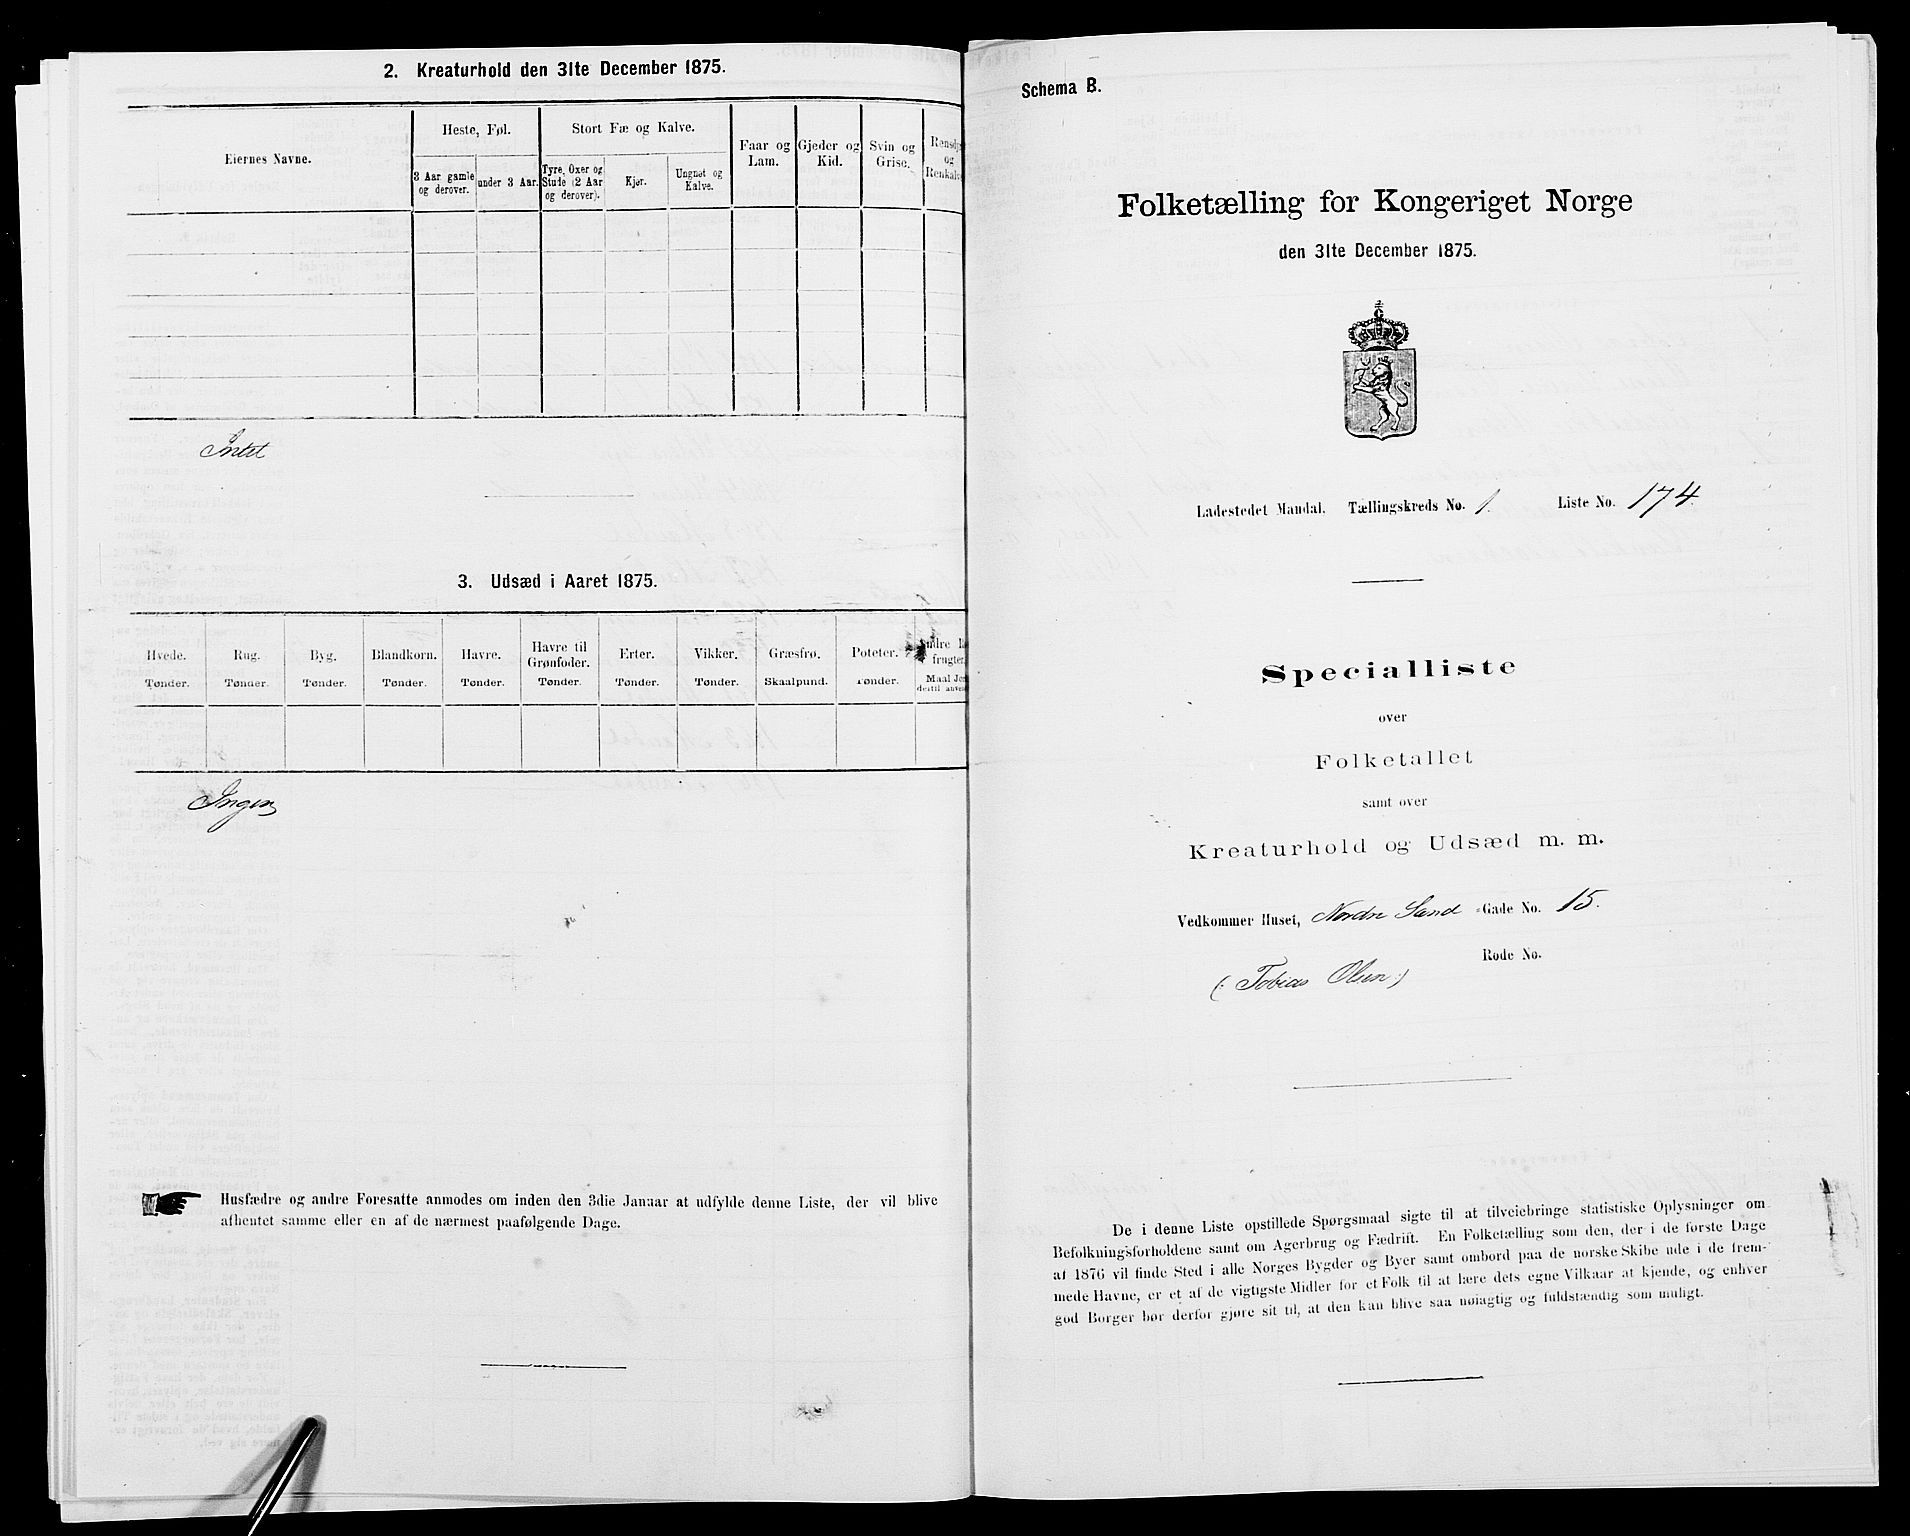 2. Kreaturhold den 31te December 1875.
Eiernes Navne.
Heste, Føl.
Stort Fæ og Kalve.
Faar og
Lam.
Gjeder og
Kid.
Svin og
Grise.
og
3 Aar gamle
og derover.
under 3 Aar.
Tyre, Oxer og
Stude (2 Aar
og derover).
Kjør.
Ungnøt og
Kalve.
Intet
3. Udsæd i Aaret 1875.
Hvede.
Rug.
Byg.
Blandkorn.
Havre.
Havre til
Grønfoder.
Erter.
Vikker.
Græsfrø.
Poteter.
Tønder.
Tønder.
Tønder.
Tønder.
Tønder.
Tønder.
Tønder.
Tønder.
Skaalpund.
Tønder.
Ingen
Husfædre og andre Foresatte anmodes om inden den 3die Januar at udfylde denne Liste, der vil blive
afhentet samme eller en af de nærmest paafølgende Dage.
Schema B.
Folketælling for Kongeriget Norge
den 31te December 1875.
Ladestedet Mandal. Tællingskreds No. 1. Liste No. 174.
Specialliste
over
Folketallet
samt over
Kreaturhold og Udsæd m. m.
Vedkommer Huset, Nordre Sand -Gade No. 15.
Rode No.
(: Tobias Olsen :)
De i denne Liste opstillede Spørgsmaal sigte til at tilveiebringe statistiske Oplysninger om
Befolkningsforholdene samt om Agerbrug og Fædrift. En Folketælling som den, der i de første Dage
af 1876 vil finde Sted i alle Norges Bygder og Byer samt ombord paa de norske Skibe ude i de frem-
mede Havne, er et af de vigtigste Midler for et Folk til at lære dets egne Vilkaar at kjende, og enhver
god Borger bør derfor gjøre sit til, at den kan blive saa nøiagtig og fuldstændig som muligt.